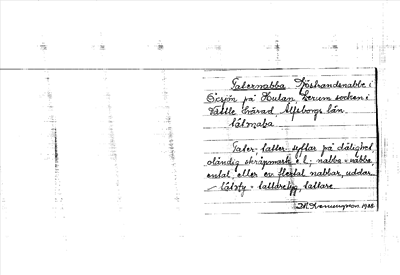 Taternabba Sjöstrandsnabbe i
på Hulan, Lerum socken i
Vättle härad, Älfsborgs län.
Tater- tatter- syftar på dålighet,
oländig skräpmark e.l; nabba = nabbe
ental, eller en flertal nabbar, uddar
tattaretyg, tattare.
1928